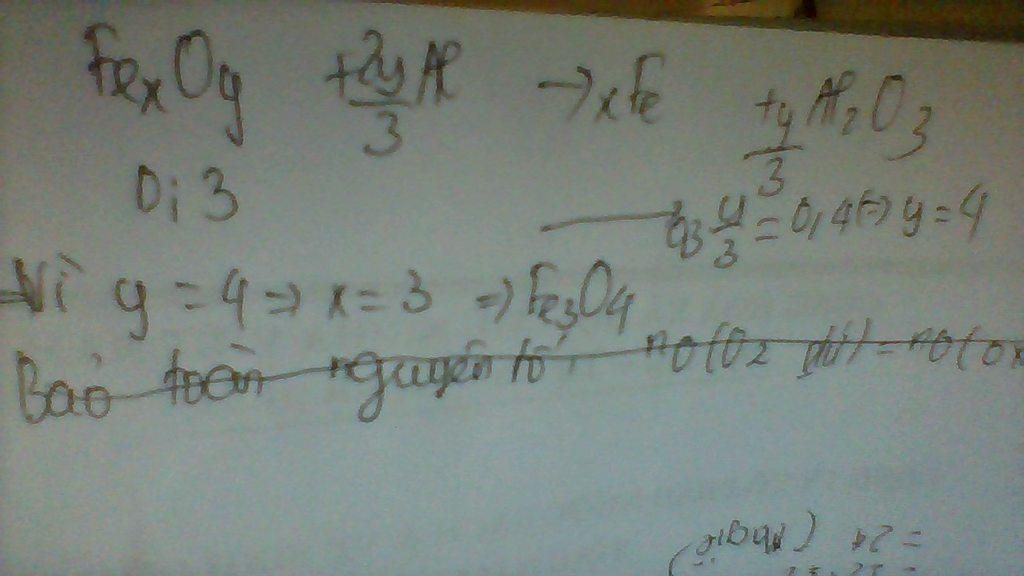 FexOy + 2y/3 Al → xFe + y/3 Al2O3
0,3
0,3 y/3 = 0,4 (=) y = 4
Vì y = 4 => x = 3 => Fe3O4
Bảo toàn nguyên tố nO(O2